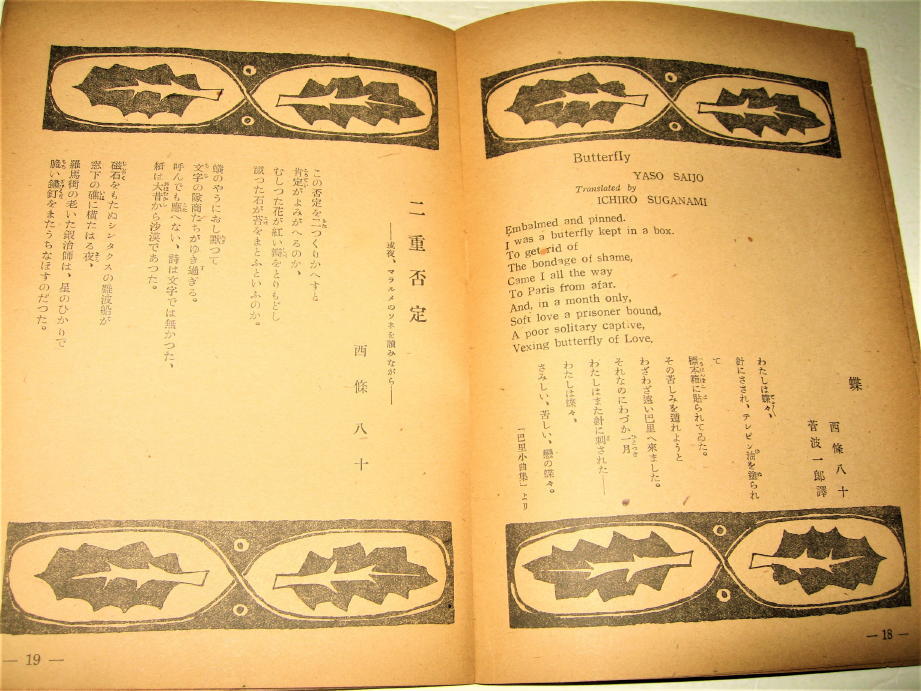 Butterfly
YASO SAIJO
Translated by
ICHIRO SUGANAMI
Embalmed and pinned.
I was a buterfly kept in a box.
To get rid of
The bondage of shame,
Came I all the way
To Paris from afar.
And, in a month only,
Soft love a prisoner bound,
A poor solitary captive,
Vexing butterfly of Love,
蝶
西條八十
菅波一郎譯
わたしは蝶々、
針にさされ、テレピン油を塗られ
て
標本箱に貼られてゐた。
その苦しみを遁れようと
わざわざ遠い巴里へ來ました。
それなのにわづか一月
わたしはまた針に刺された——
わたしは蝶々、
さみしい、苦しい、戀の蝶々。
「巴里小曲集」より
— 18 —
二重否定
——或夜、マラルメのソネを讀みながら——
西條八十
この否定を二つくりかへすと
肯定がよみがへるのか、
むしつた花が紅い瓣をとりもどし
蹴つた石が苔をまとふといふのか。
鱗のやうにおし默つて
文字の隊商たちがゆき過ぎる。
呼んでも應へない、詩は文字では無かつた、
紙は大昔から沙漠であつた。
磁石をもたぬシンタクスの難波船が
窓下の礁に横たはる夜、
羅馬街の老いた鍛冶師は、星のひかりで
脆い鏽釘をまたうちなほすのだつた。
— 19 —